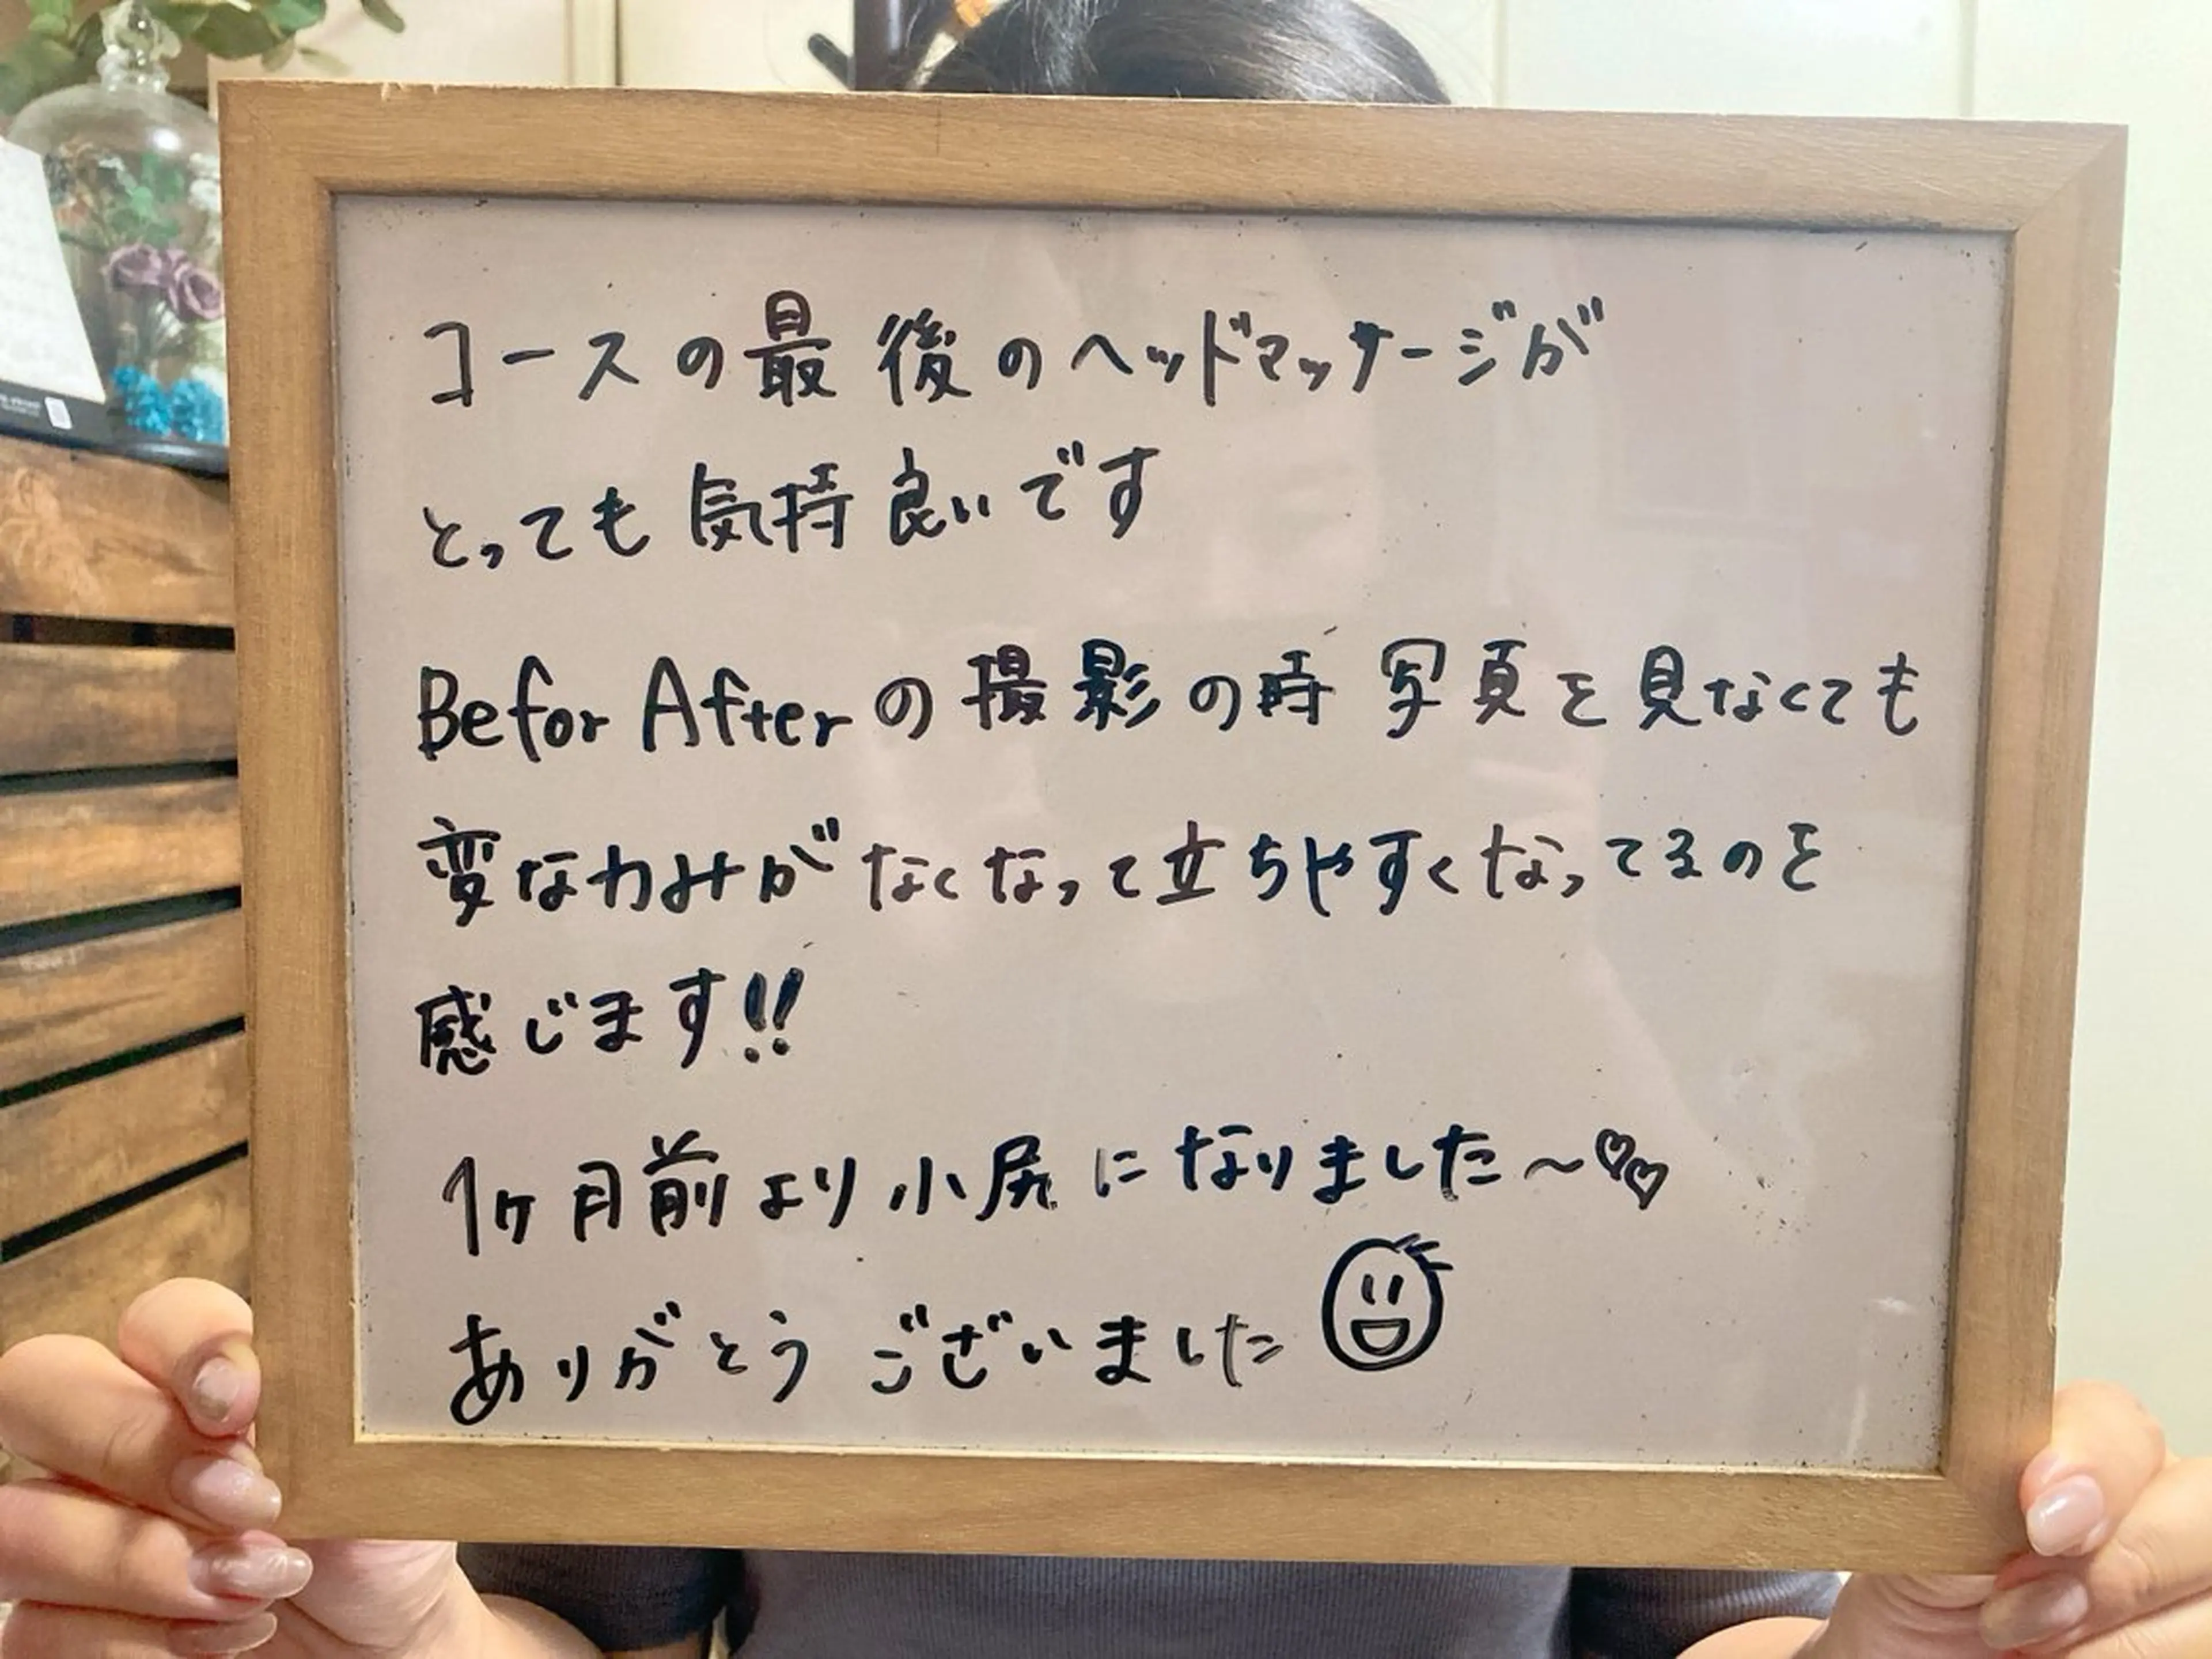 コースの最後のヘッドマッサージが
とっても気持良いです
Befor Afterの撮影の時 写真を見なくても
変な力みがなくなって立ちやすくなってるのを
感じます!!
1ヶ月前より小尻になりました〜♡♡
ありがとうございました